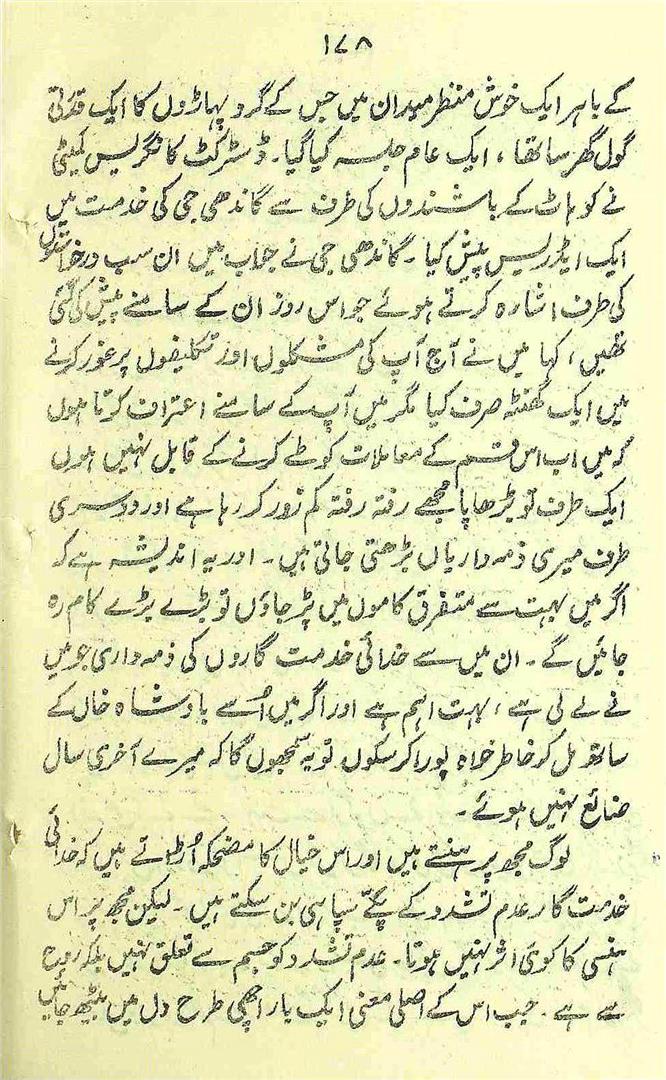 ۱۷۸
کے باہر ایک خوش منظر میدان میں جس کے گرد پہاڑوں کا ایک قدرتی
گول گھر سا تھا، ایک عام جلسہ کیا گیا۔ ڈسٹرکٹ کانگریس کمیٹی
نے کوہاٹ کے باشندوں کی طرف سے گاندھی جی کی خدمت میں
ایک ایڈریس پیش کیا۔ گاندھی جی نے جواب میں ان سب درخواستوں
کی طرف اشارہ کرتے ہوئے جو اس روز ان کے سامنے پیش کی گئی
تھیں، کہا میں نے آج آپ کی مشکلوں اور تکلیفوں پر غور کرنے
میں ایک گھنٹہ صرف کیا مگر میں آپ کے سامنے اعتراف کرتا ہوں
کہ میں اب اس قسم کے معاملات کو طے کرنے کے قابل نہیں ہوں
ایک طرف تو بڑھاپا مجھے رفتہ رفتہ کم زور کر رہا ہے اور دوسری
طرف میری ذمہ داریاں بڑھتی جاتی ہیں۔ اور یہ اندیشہ ہے کہ
اگر میں بہت سے متفرق کاموں میں پڑ جاؤں تو بڑے بڑے کام رہ
جائیں گے۔ ان میں سے خدائی خدمت گاروں کی ذمہ داری جو میں
نے لے لی ہے، بہت اہم ہے اور اگر میں اُسے بادشاہ خاں کے
ساتھ مل کر خاطر خواہ پورا کر سکوں تو یہ سمجھوں گا کہ میرے آخری سال
ضائع نہیں ہوئے۔
لوگ مجھ پر ہنستے ہیں اور اس خیال کا مضحکہ اُڑاتے ہیں کہ خدائی
خدمت گار عدم تشدد کے پکّے سپاہی بن سکتے ہیں۔ لیکن مجھ پر اس
ہنسی کا کوئی اثر نہیں ہوتا۔ عدم تشدد کو جسم سے تعلق نہیں بلکہ روح
سے ہے۔ جب اس کے اصلی معنی ایک بار اچھی طرح دل میں بیٹھ جائیں